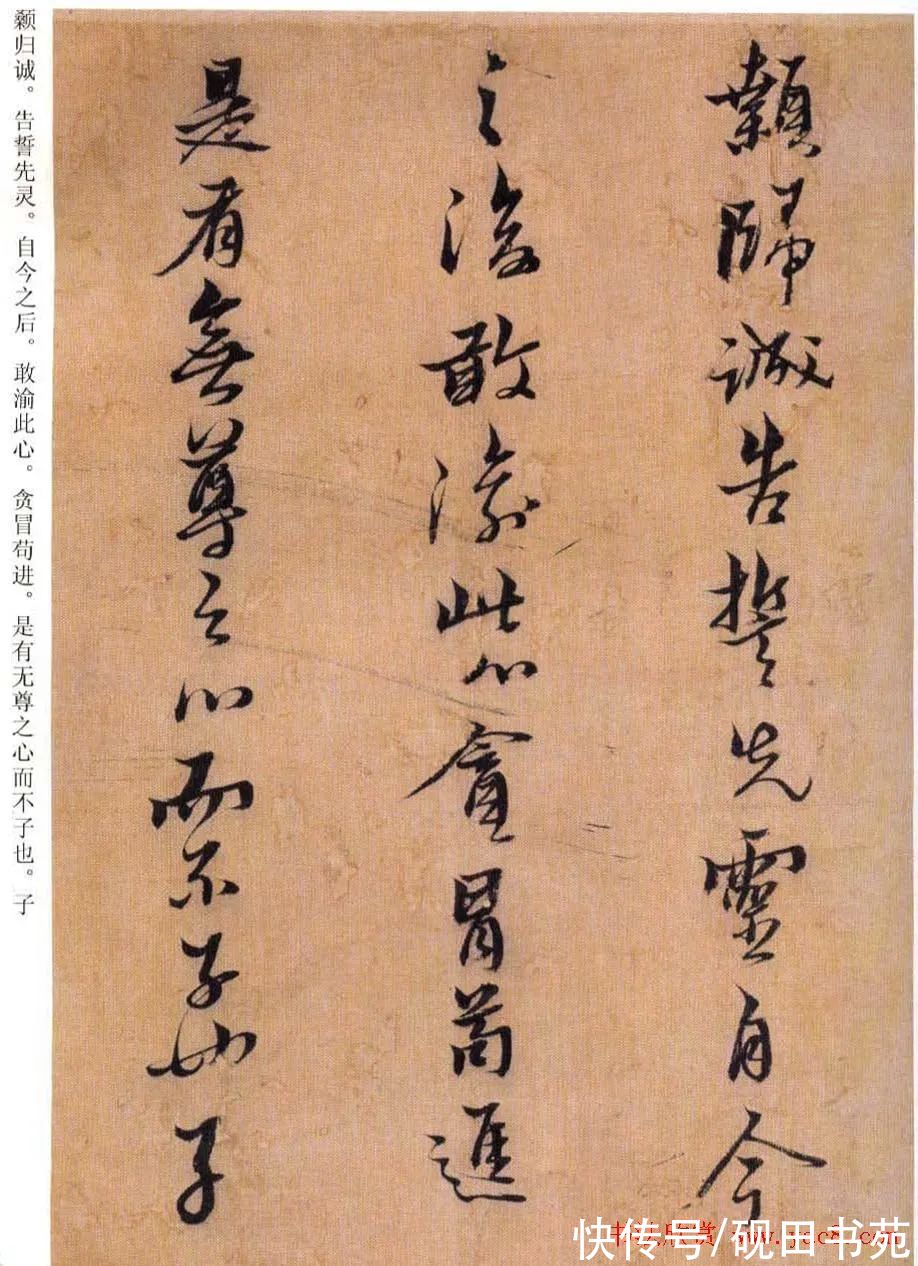 顙歸誠告誓先靈自今
之後敢渝此心貪冒苟進
是有無尊之心而不子也子
颡归诚。告誓先灵。自今之后。敢渝此心。贪冒苟进。是有无尊之心而不子也。子
快传号/砚田书苑